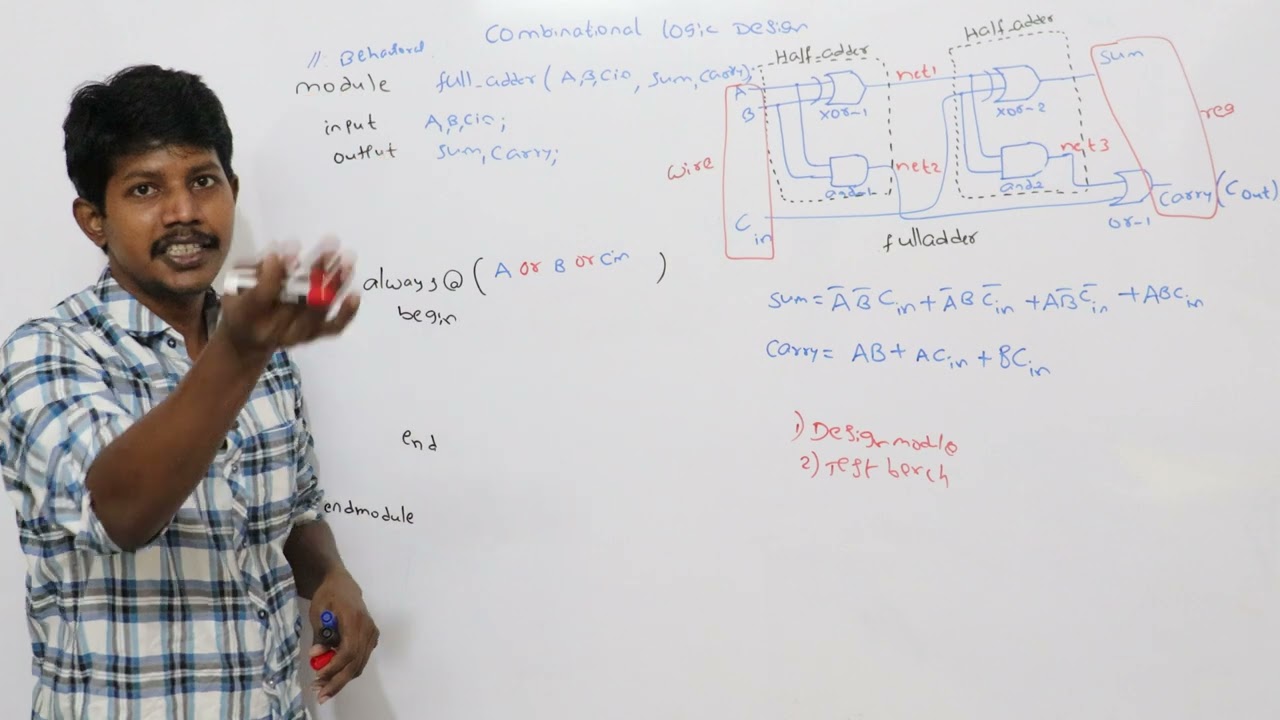 Combinational Logic Design
// Behavioral
module full_adder ( A,B,Cin , Sum, Carry);
input A,B,Cin;
output Sum, Carry;
always@ ( A or B or Cin )
begin
end
endmodule
Half_adder
Half_adder
A
B
C in
wire
xor-1
and-1
net1
net2
xor-2
and2
net3
or-1
Sum
reg
Carry (Cout)
fulladder
Sum = A̅ B̅ Cin + A̅ B C̅in + A B̅ C̅in + ABCin
Carry = AB + ACin + BCin
1) Design module
2) Test bench